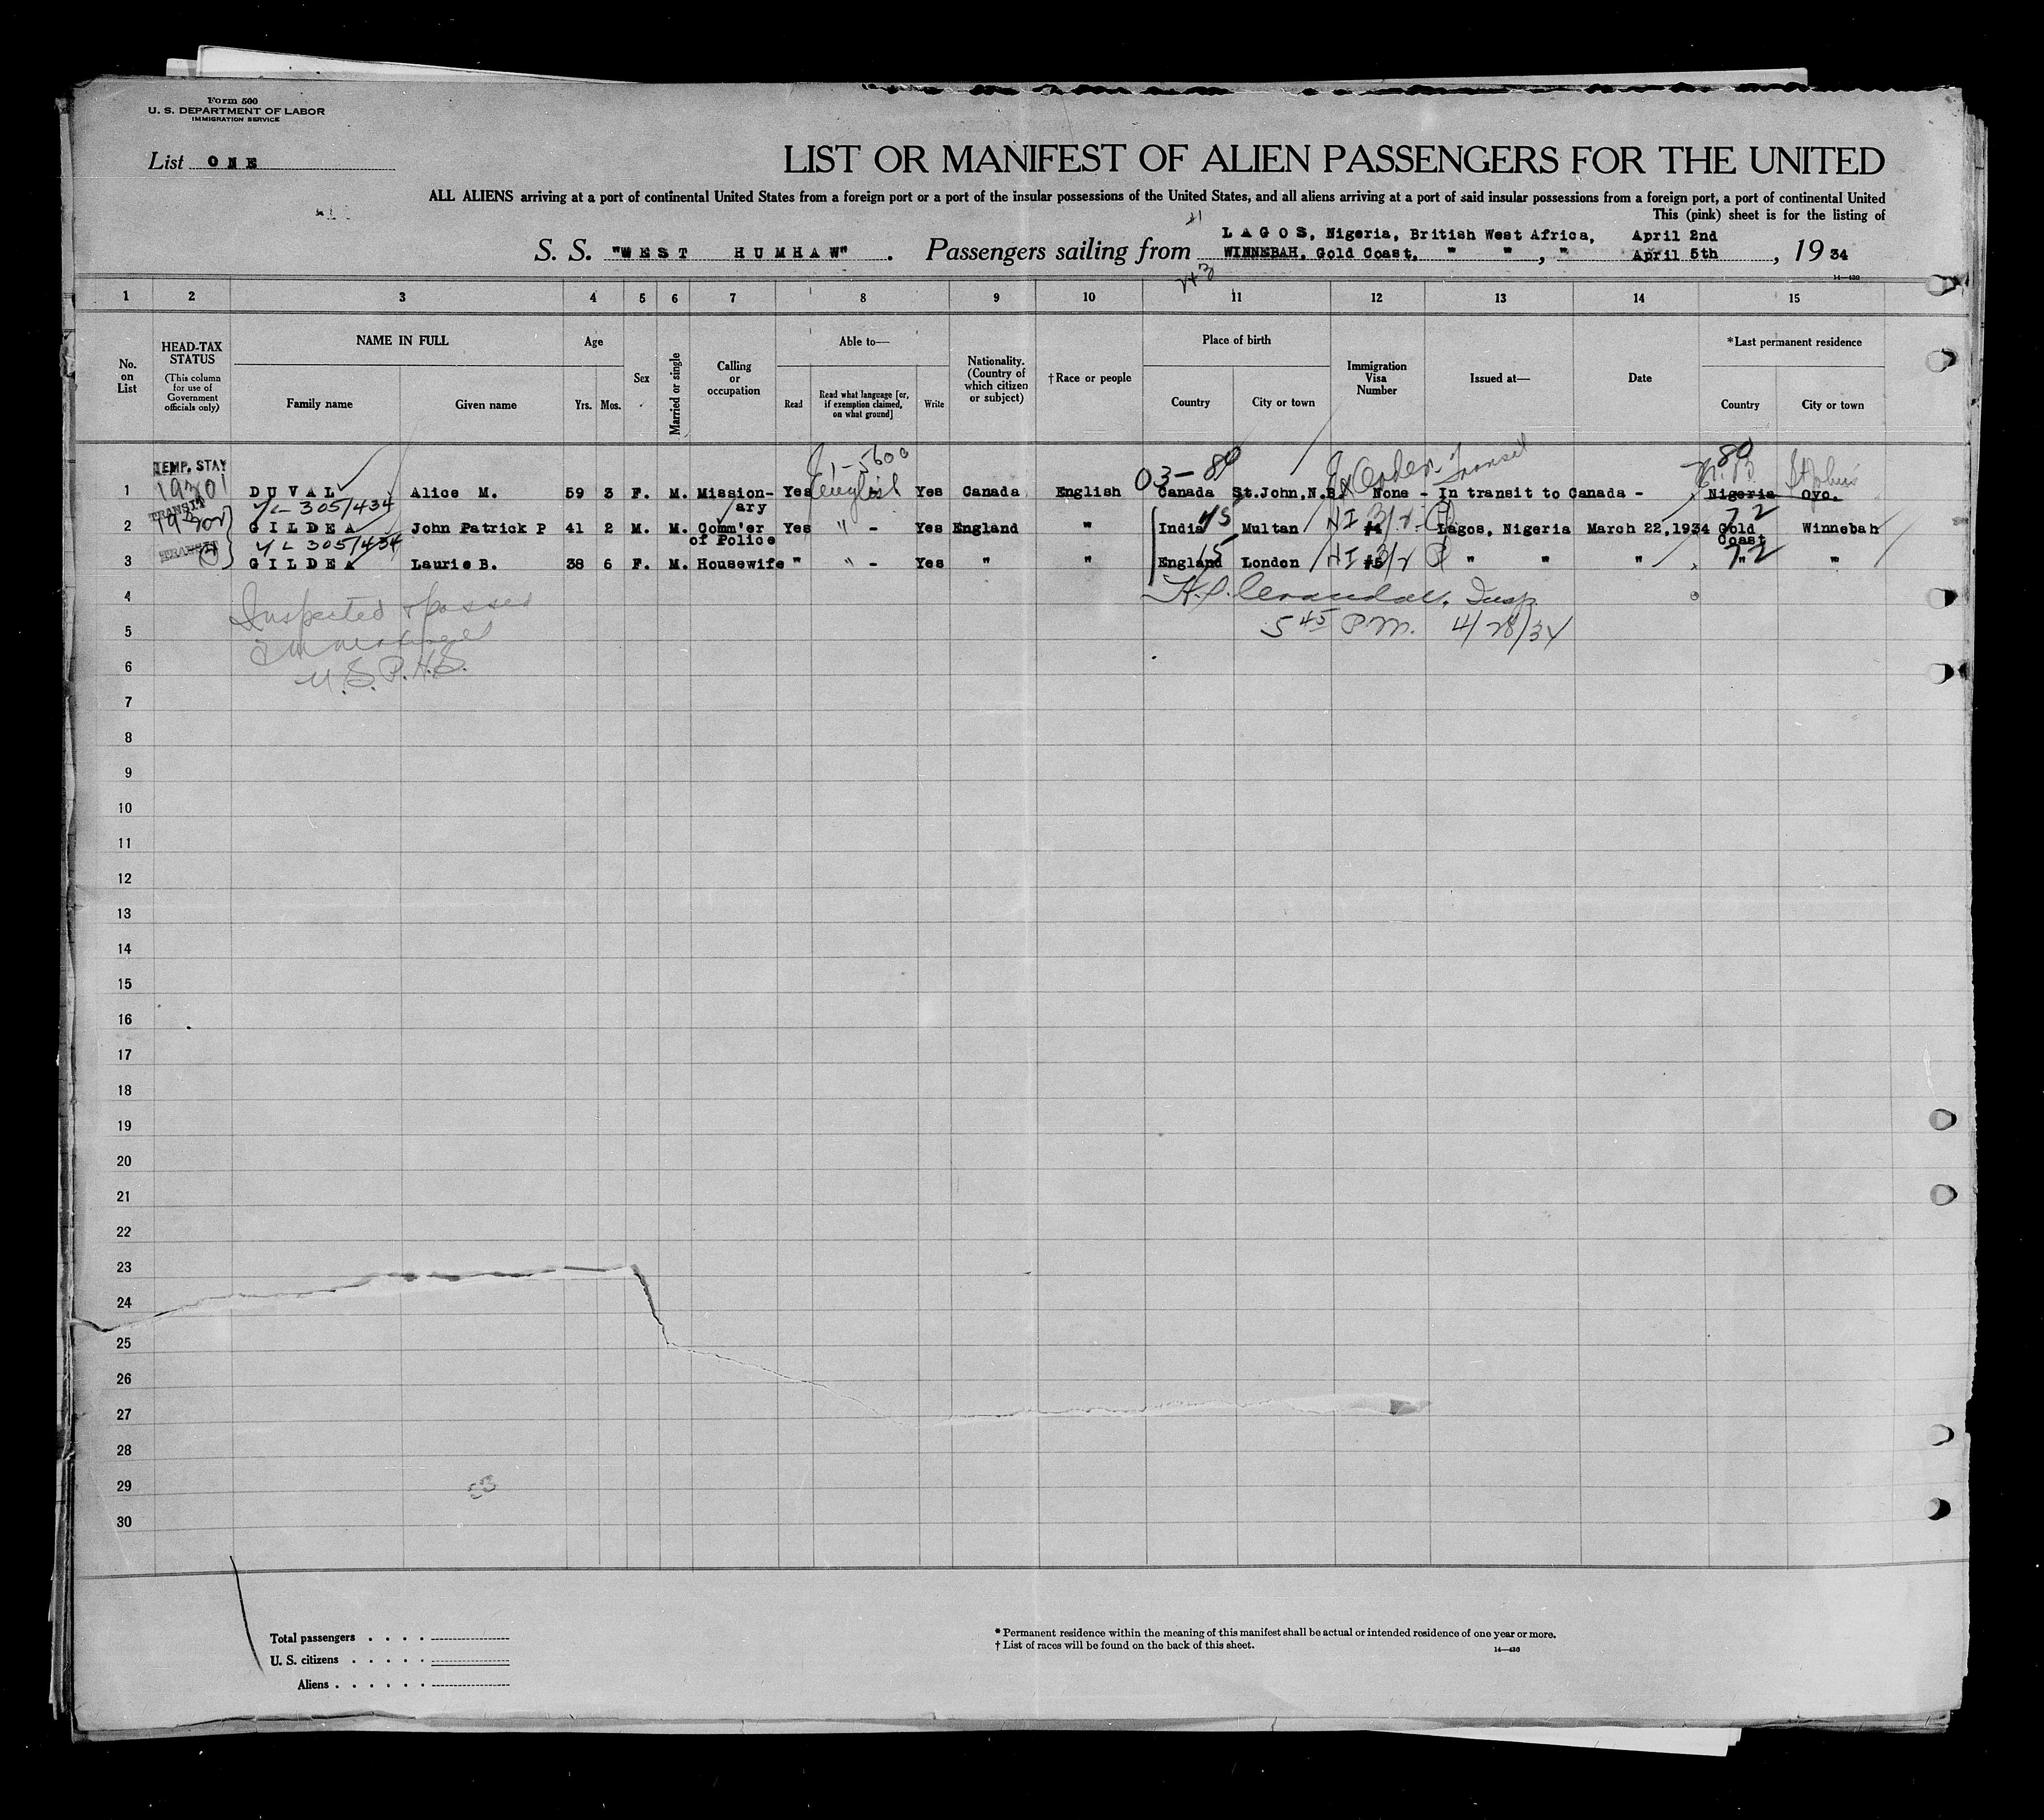 Form 500
U. S. DEPARTMENT OF LABOR
IMMIGRATION SERVICE
List ONE
LIST OR MANIFEST OF ALIEN PASSENGERS FOR THE UNITED
ALL ALIENS arriving at a port of continental United States from a foreign port or a port of the insular possessions of the United States, and all aliens arriving at a port of said insular possessions from a foreign port, a port of continental United
This (pink) sheet is for the listing of
S. S. "WEST HUMHAW". Passengers sailing from LAGOS, Nigeria, British West Africa, April 2nd
WINNEBAH, Gold Coast, " " , " April 5th, 1934
14—430
1 2 3 4 5 6 7 8 9 10 11 12 13 14 15
No. on List
HEAD-TAX STATUS
(This column for use of Government officials only)
NAME IN FULL
Family name
Given name
Age
Yrs. Mos.
Sex
Married or single
Calling or occupation
Able to—
Read
Read what language [or, if exemption claimed, on what ground]
Write
Nationality. (Country of which citizen or subject)
†Race or people
Place of birth
Country
City or town
Immigration Visa Number
Issued at—
Date
*Last permanent residence
Country
City or town
1-5600
03-80
Transit
80
TEMP. STAY
1 DUVAL Alice M. 59 3 F. M. Mission-ary Yes English Yes Canada English Canada St.John,N.B. None - In transit to Canada - Nigeria Oyo. St John's
TRANSIT
305/434
2 GILDEA John Patrick P 41 2 M. M. Comm'er of Police Yes " - Yes England " India 45 Multan #4 Lagos, Nigeria March 22,1934 Gold Coast 72 Winnebah
TRANSIT
305/434
3 GILDEA Laurie B. 38 6 F. M. Housewife " " - Yes " " England 15 London #5 " " " " 72 "
4
Inspected & passed
Insp.
5
5 45 P.M. 4/28/34
6
U.S.P.H.S.
7
8
9
10
11
12
13
14
15
16
17
18
19
20
21
22
23
24
25
26
27
28
29
30
Total passengers . . . .
U. S. citizens . . . . .
Aliens . . . . . .
* Permanent residence within the meaning of this manifest shall be actual or intended residence of one year or more.
† List of races will be found on the back of this sheet.
14—430